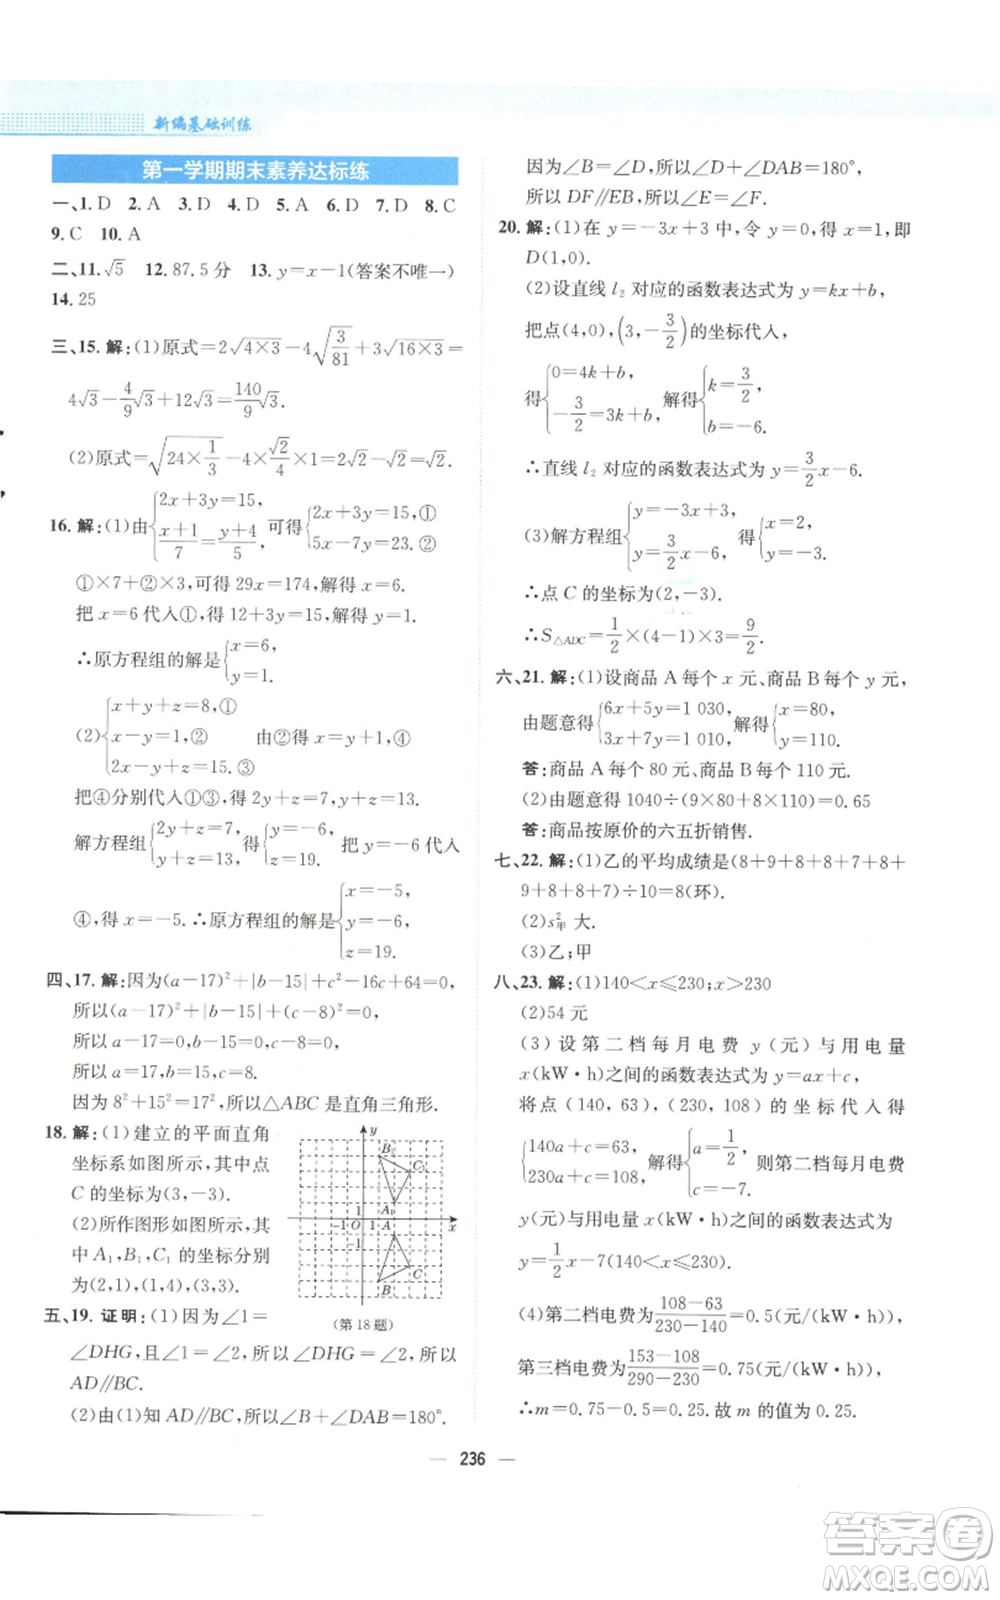 新编基础训练
第一学期期末素养达标练
一、1. D 2. A 3. D 4. D 5. A 6. D 7. D 8. C
9. C 10. A
二、11. √5 12. 87.5分 13. y=x-1(答案不唯一)
14. 25
三、15. 解:(1)原式=2√(4×3)-4√(3/81)+3√(16×3)=
4√3-4/9√3+12√3=140/9√3.
(2)原式=√(24×1/3)-√2/4×4×1=2√2-√2=√2.
16. 解:(1)由{2x+3y=15, (x+1)/7=(y+4)/5 可得{2x+3y=15,① 5x-7y=23.②
①×7+②×3,可得 29x=174,解得 x=6.
把 x=6 代入①,得 12+3y=15,解得 y=1.
∴原方程组的解是{x=6, y=1.
(2){x+y+z=8,① x-y=1,② 2x-z=15.③ 由②得 x=y+1,④
把④分别代入①③,得 2y+z=7,2y-z=13.
解方程组{2y+z=7, 2y-z=13. 得{y=5, z=-3. 把 y=-6 代入
④,得 x=-5. ∴原方程组的解是{x=-5, y=-6, z=19.
四、17. 解:因为(a-17)²+|b-15|+c²-16c+64=0,
所以(a-17)²+|b-15|+(c-8)²=0,
所以 a-17=0,b-15=0,c-8=0,
所以 a=17,b=15,c=8.
因为 8²+15²=17²,所以△ABC 是直角三角形.
18. 解:(1)建立的平面直角
坐标系如图所示,其中点
C 的坐标为(3,-3).
(2)所作图形如图所示,其
中 A₁,B₁,C₁ 的坐标分别
为(2,1),(1,4),(3,3).
y
B₁
C₁
A₁
1
-1 O 1 A x
-1
C
B
(第 18 题)
五、19. 证明:(1)因为∠1=
∠DHG,且∠1=∠2,所以∠DHG=∠2,所以
AD//BC.
(2)由(1)知 AD//BC,所以∠B+∠DAB=180°.
因为∠B=∠D,所以∠D+∠DAB=180°,
所以 DF//EB,所以∠E=∠F.
20. 解:(1)在 y=-3x+3 中,令 y=0,得 x=1,即
D(1,0).
(2)设直线 l₂ 对应的函数表达式为 y=kx+b,
把点(4,0),(3,-3/2)的坐标代入,
得{0=4k+b, -3/2=3k+b, 解得{k=3/2, b=-6.
∴直线 l₂ 对应的函数表达式为 y=3/2x-6.
(3)解方程组{y=-3x+3, y=3/2x-6, 得{x=2, y=-3.
∴点 C 的坐标为(2,-3).
∴S△ADC=1/2×(4-1)×3=9/2.
六、21. 解:(1)设商品 A 每个 x 元、商品 B 每个 y 元,
由题意得{6x+5y=1 030, 3x+7y=1 010, 解得{x=80, y=110.
答:商品 A 每个 80 元、商品 B 每个 110 元.
(2)由题意得 1040÷(9×80+8×110)=0.65
答:商品按原价的六五折销售.
七、22. 解:(1)乙的平均成绩是(8+9+8+8+7+8+
9+8+8+7)÷10=8(环).
(2)s²甲 大.
(3)乙;甲
八、23. 解:(1)140<x≤230;x>230
(2)54 元
(3)设第二档每月电费 y(元)与用电量
x(kW·h)之间的函数表达式为 y=ax+c,
将点(140,63),(230,108)的坐标代入得
{140a+c=63, 230a+c=108, 解得{a=1/2, c=-7. 则第二档每月电费
y(元)与用电量 x(kW·h)之间的函数表达式为
y=1/2x-7(140<x≤230).
(4)第二档电费为(108-63)/(230-140)=0.5(元/kW·h)
第三档电费为(153-108)/(290-230)=0.75(元/kW·h)
∴m=0.75-0.5=0.25. 故 m 的值为 0.25.
236
答案卷
MXQE.COM